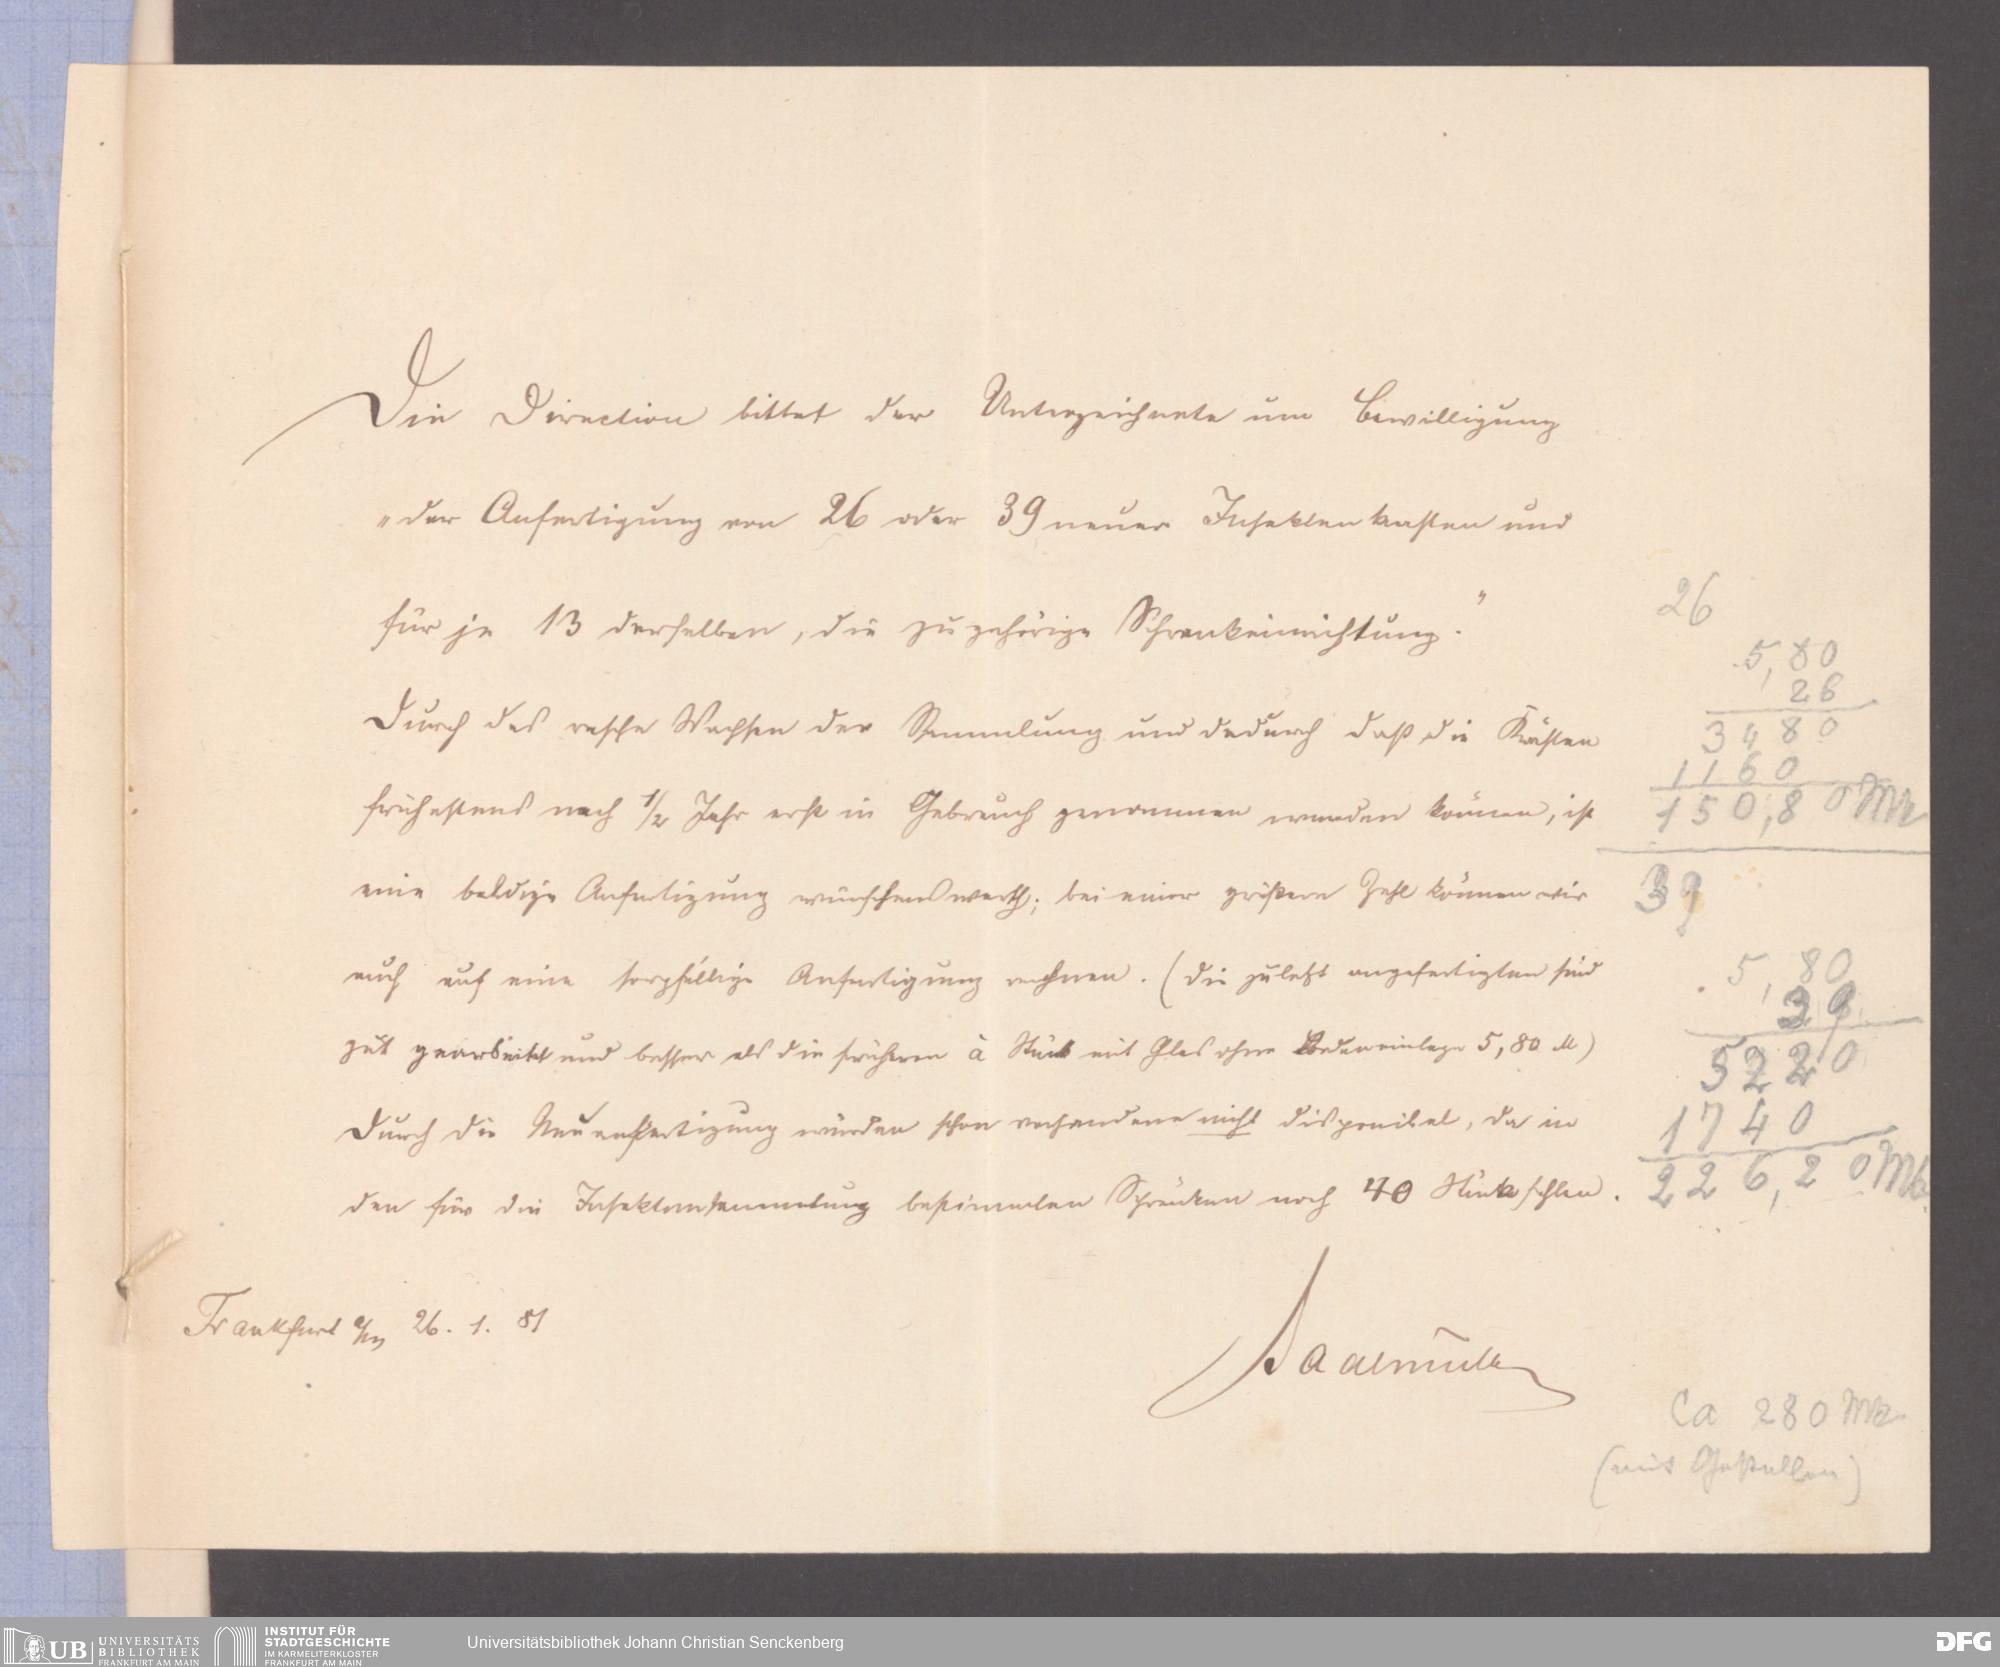 Die Direction bittet der Unterzeichnete um Bewilligung
„der Anfertigung von 26 oder 39 neuer Insektenkasten und
für je 13 derselben, die zugehörige Schrankeinrichtung.“
Durch das rasche Wachsen der Sammlung und dadurch daß die Kästen
frühestens nach 1/2 Jahr erst in Gebrauch genommen werden können, ist
eine baldige Anfertigung wünschenswerth; bei einer größern Zahl können wir
auch auf eine sorgfällige Anfertigung rechnen. (die zuletzt angefertigten sind
gut gearbeitet und besser als die früheren à Stück mit Glas ohne Bodeneinlage 5,80 M)
Durch die Neuanfertigung würden schon vorhandene nicht disponibel, da in
den für die Insektensammlung bestimmten Schränken noch 40 Stück fehlen.
Frankfurt a/m 26. 1. 81
Saalmüller
26
5,80
26
3480
1160
150,80 Mk
39
5,80
39
5220
1740
226,20 Mk.
Ca 280 Mk.
(mit Gestellen)
UB UNIVERSITÄTS
BIBLIOTHEK
FRANKFURT AM MAIN
INSTITUT FÜR
STADTGESCHICHTE
IM KARMELITERKLOSTER
FRANKFURT AM MAIN
Universitätsbibliothek Johann Christian Senckenberg
DFG